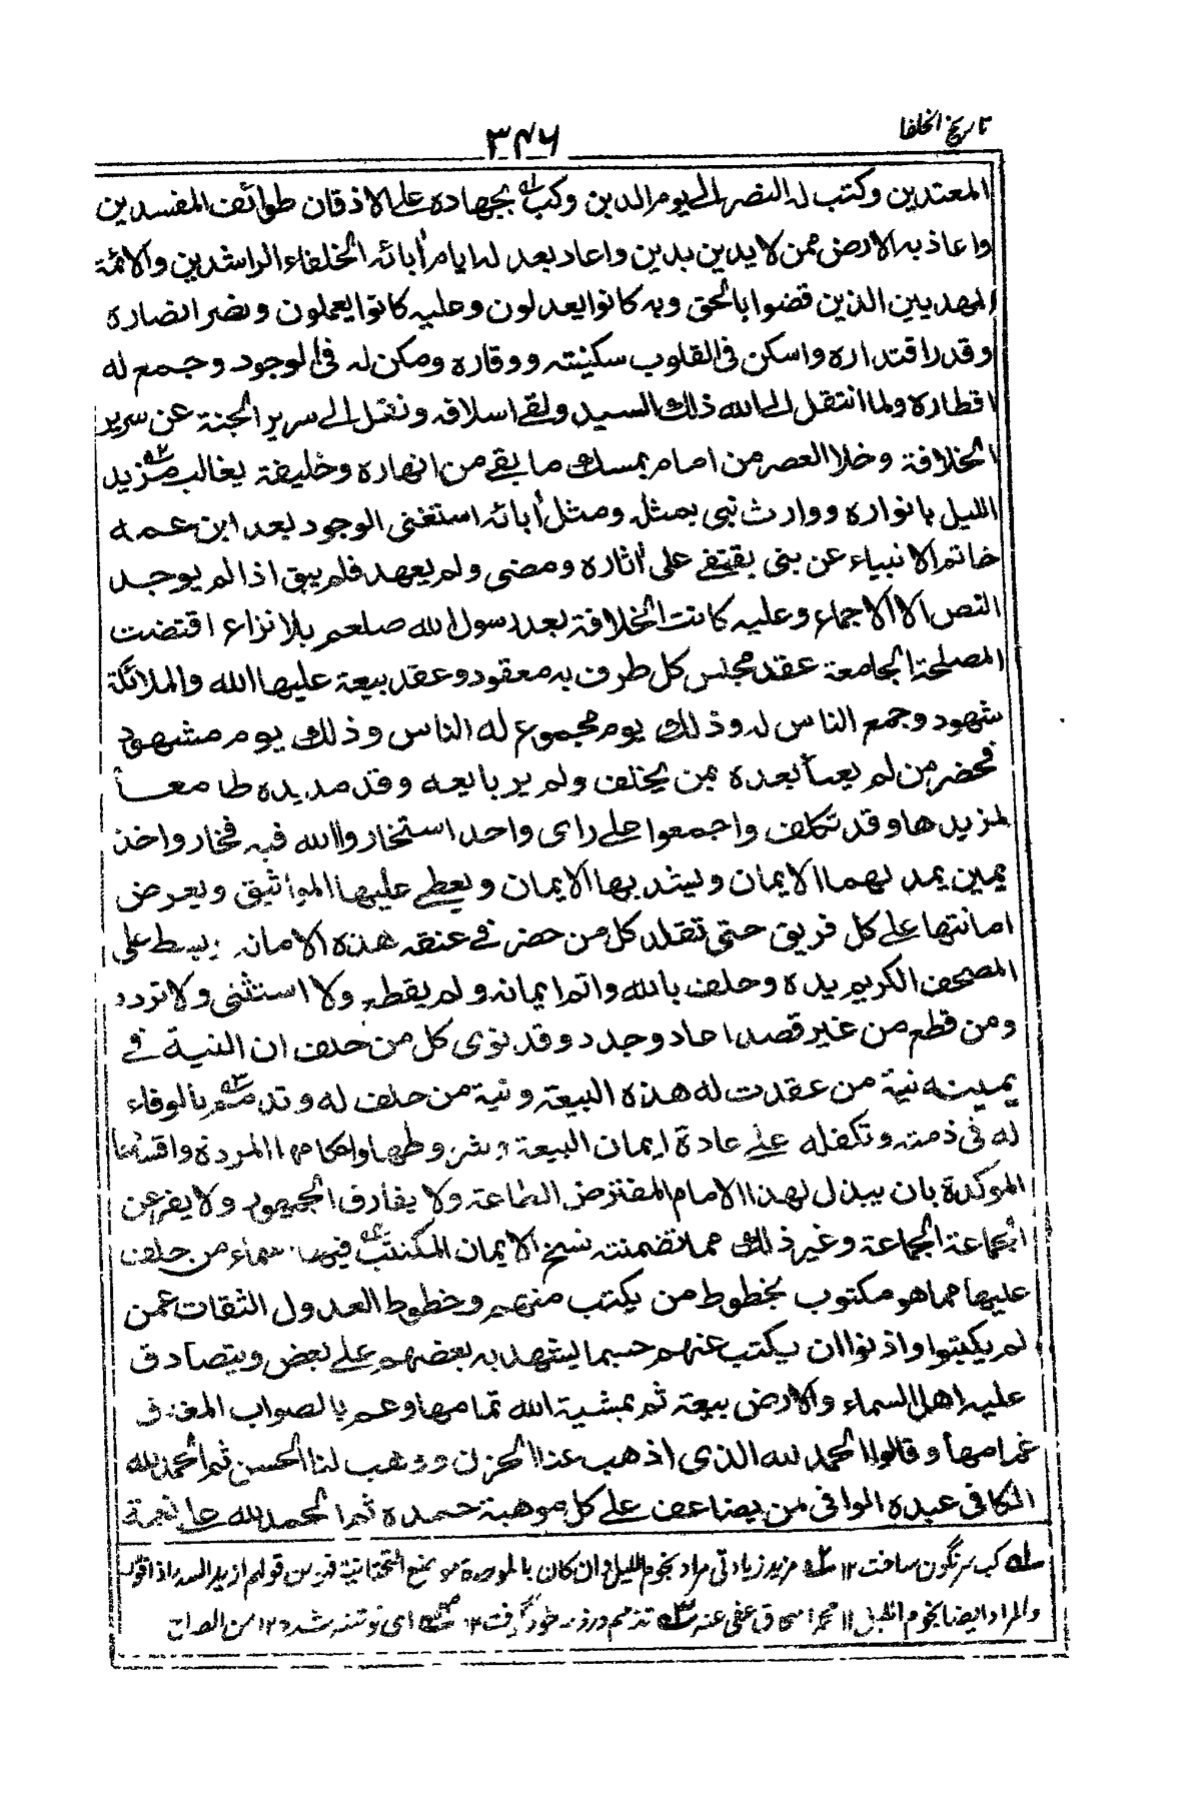 تاريخ الخلفا
٣٤٦
المعتدين وكتب له النصر الى يوم الدين وكب بجهاده على الاذقان طوائف المفسدين
واعاذ به الارض ممن لا يدين بدين واعاد بعد له ايام أبائه الخلفاء الراشدين والائمة
المهديين الذين قضوا بالحق وبه كانوا يعدلون وعليه كانوا يعملون ونصر انصاره
وقدر اقتداره واسكن فى القلوب سكنيته ووقاره ومكن له فى الوجود وجمع له
اقطاره ولما انتقل الى الله ذلك السيد ولقے اسلافه ونقل الى سرير الجنة عن سرير
الخلافة وخلا العصر من امام يمسك ما بقے من انهاره وخليفة يغالب مزيد
الليل بانواره ووارث نبى بمثله ومثل أبائه استغنى الوجود بعد ابن عمه
خاتم الانبياء عن بنى يقتفے على أثاره ومضى ولم يعهد فلم يبق اذا لم يوجد
النص الا الاجماع وعليه كانت الخلافة بعد رسول الله صلعم بلا نزاع اقتضت
المصلحة الجامعة عقد مجلس كل طرف به معقود وعقد بيعة عليها الله والملائكة
شهود وجمع الناس له وذلك يوم مجموع له الناس وذلك يوم مشهود
فحضر من لم يعبأ بعده بمن تخلف ولم ير بايعه وقد مد يده طامعأ
لمزيدها وقد تكلف واجمعوا على راى واحد استخاروا الله فيه فخار واخذ
يمين يمد لهما الايمان ويشد بها الايمان ويعطے عليها المواثيق ويعرض
امانتها على كل فريق حتى تقلد كل من حضر فے عنقه هذه الامانة وبسط على
المصحف الكريم يده وحلف بالله واتم ايمانه ولم يقطع ولا استثنى ولا تردد
ومن قطع من غير قصد اعاد وجدد وقد نوى كل من حلف ان النية فے
يمينه نية من عقدت له هذه البيعة ونية من حلف له وتذمم بالوفاء
له فى ذمته وتكفله علے عادة ايمان البيعة وشروطها واحكامها المرددة واقسامها
الموكدة بان يبذل لهذا الامام المفترض الطاعة ولا يفارق الجمهور ولا يفر عن
الجماعة الجماعة وغير ذلك مما تضمنته نسخ الايمان المكتتب فيها اسماء من حلف
عليها مما هو مكتوب بخطوط من يكتب منهم وخطوط العدول الثقات عمن
لم يكتبوا واذنوا ان يكتب عنهم حسبما يشهد به بعضهم على بعض ويتصادق
عليه اهل السماء والارض بيعة ثم بمشية الله تمامها وعم بالصواب المغدق
غمامها وقالوا الحمد لله الذى اذهب عنا الحزن ووهب لنا الحسن ثم الحمد لله
الكافى عبده الوافى من يضاعف علے كل موهبة حمده ثم الحمد لله على نعمة
له كب سرنگون ساخت ١٢ مزيد زيادتى مراد نجوم الليل وان كان بالموحدة
والمراد ايضا نجوم الليل تذمم ورذمه خود گرفت ١٢ اى نوشته شده ١٢ من الصراح